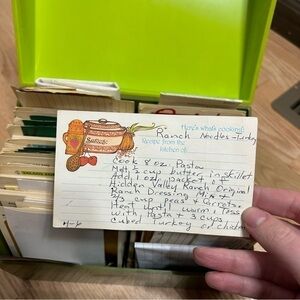 Here's what's cooking:
Ranch Noodles-Turkey
Serves:
Recipe from the
kitchen of
Cook 8 oz. Pasta
Melt 1/2 cup butter in skillet
Add 1 oz packet of
Hidden Valley Ranch Original
Ranch Dressing Mix &
1/3 cup peas & carrots.
Heat until warm. Toss
with Pasta & 3 cups
cubed Turkey or chicken
4-6